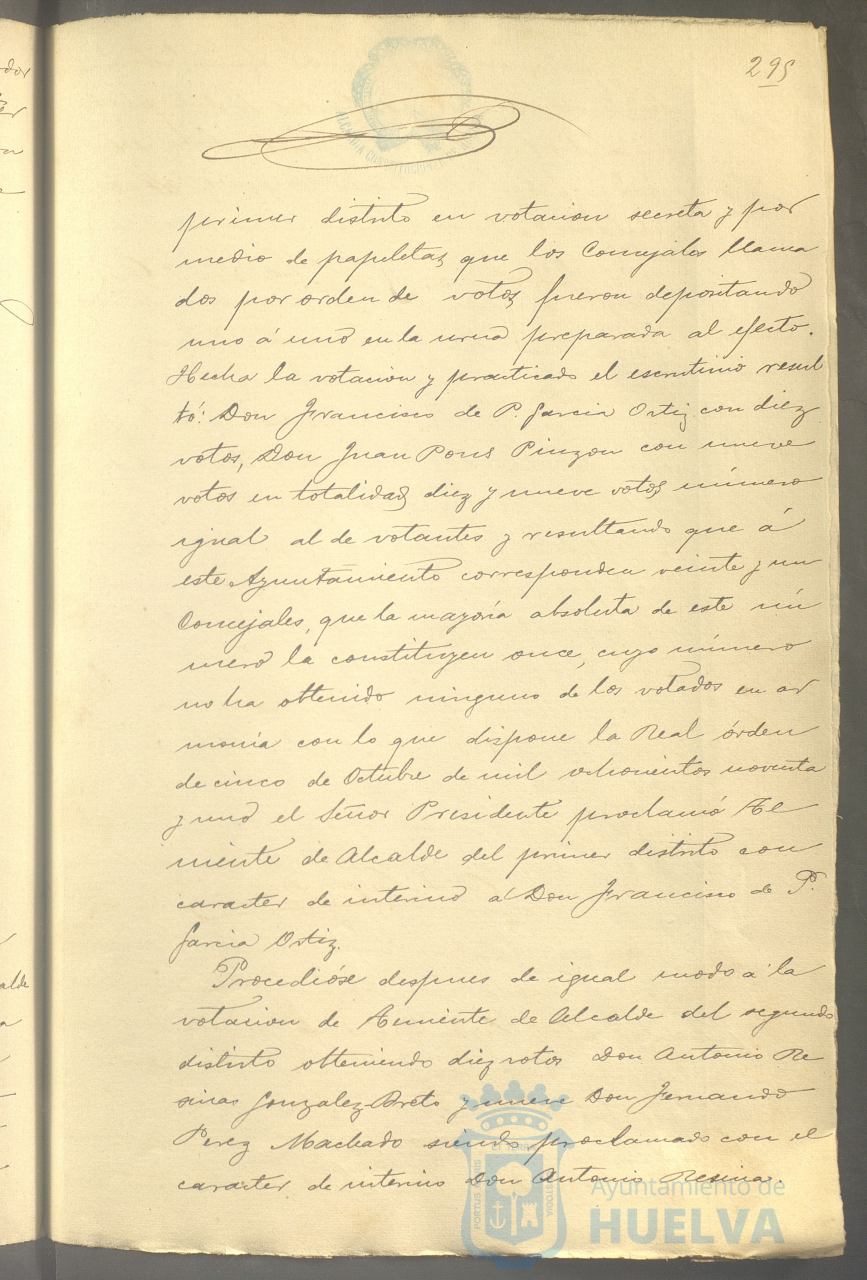 295
primer distrito en votacion secreta y por
medio de papeletas que los Concejales llama
dos por orden de votos, fueron depositando
uno á uno en la urna preparada al efecto.
Hecha la votacion y practicado el escrutinio resul
tó: Don Francisco de P. Garcia Ortiz con diez
votos, Don Juan Pons Pinzon con nueve
votos en totalidad, diez y nueve votos número
igual al de votantes y resultando que á
este Ayuntamiento corresponden veinte y un
Concejales, que la mayoría absoluta de este nú
mero la constituyen once, cuyo número
no ha obtenido ninguno de los votados en ar
monía con lo que dispone la Real órden
de cinco de Octubre de mil ochocientos noventa
y uno el Señor Presidente proclamó Te
niente de Alcalde del primer distrito con
caracter de interino á Don Francisco de P.
Garcia Ortiz.
Procedióse despues de igual modo á la
votacion de Teniente de Alcalde del segundo
distrito obteniendo diez votos Don Antonio Re
sinas Gonzalez Breto y nueve Don Fernando
Perez Machado siendo proclamado con el
caracter de interino Don Antonio Resina.
Ayuntamiento de
HUELVA